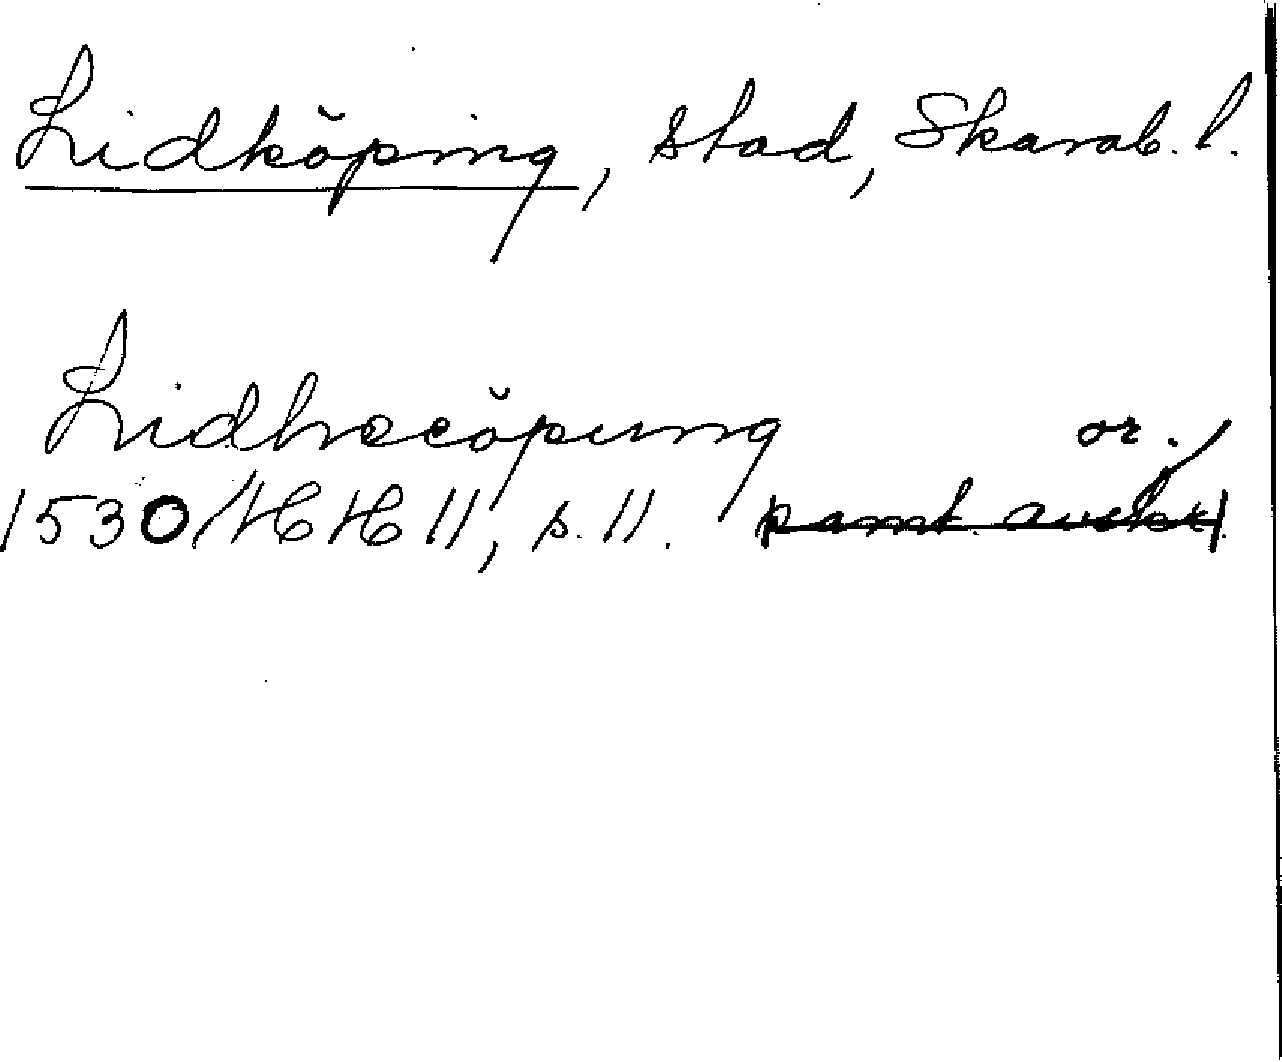 Lidköping, stad, Skarab. l.
Lidhecöpung or.
1530/HH 11, s. 11. samt avskr.